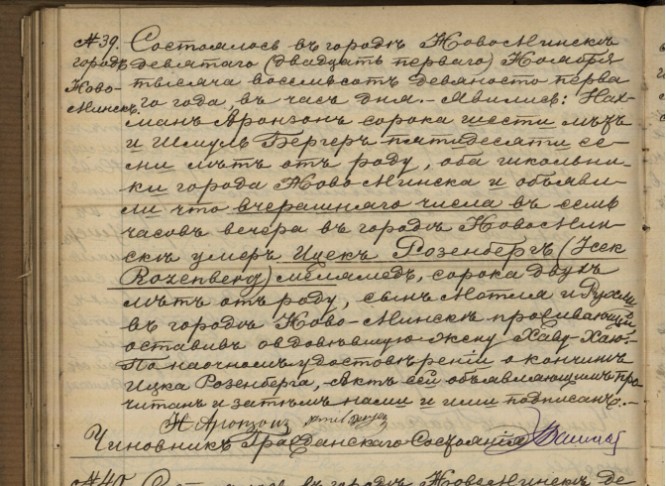 № 39. Состоялось въ городѣ НовоМинскѣ
городъ девятаго (двадцать перваго) Ноября
Ново- тысяча восемьсотъ девяносто перва
Минскъ. го года, въ часъ дня. Явились: Нах-
манъ Аронзонъ сорока шести лѣтъ
и Шмуль Бергеръ пятидесяти се-
ми лѣтъ отъ роду, оба школьни-
ки города НовоМинска и объяви-
ли что вчерашняго числа въ семь
часовъ вечера въ городѣ НовоМин-
скѣ умеръ Ицекъ Розенбергъ (Icek
Rozenberg) меламедъ, сорока двухъ
лѣтъ отъ роду, сынъ Мотля и Рухли
въ городѣ Ново-Минскѣ проживающій,
оставивъ овдовѣвшую жену Хаву-Хаю.-
По наочномъ удостовѣреніи о кончинѣ
Ицка Розенберга, Актъ сей объявляющимъ про
читанъ и затѣмъ нами и ими подписанъ.-
Н Аронзонъ
Чиновникъ Гражданскаго Состоянія
№ 40. Состоялось въ городѣ НовоМинскѣ де